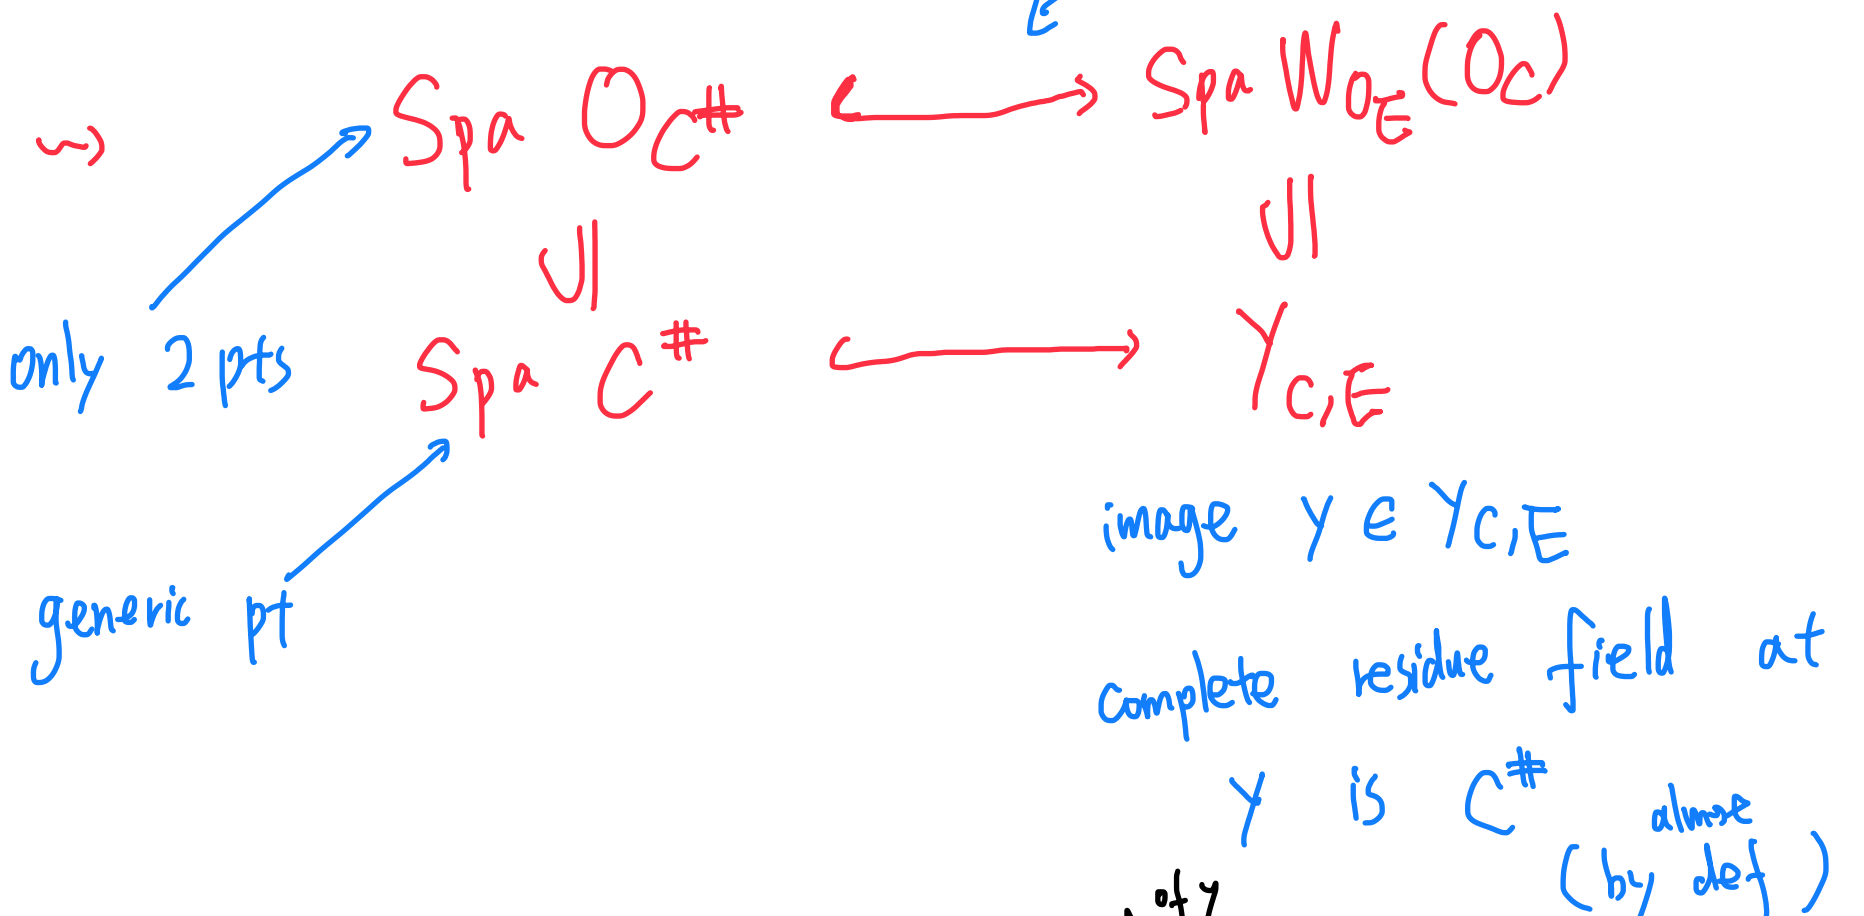 E
⇝ Spa O_{C^#} ↪ Spa W_{O_E}(O_C)
only 2 pts
∪|
∪|
Spa C^# ↪ Y_{C,E}
generic pt
image y ∈ Y_{C,E}
complete residue field at
y is C^#
almost
(by def)
of y